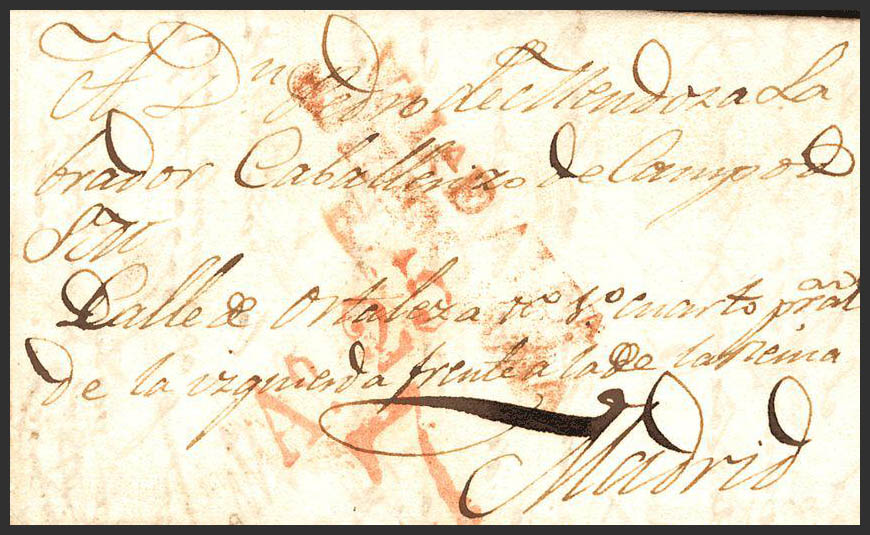 A Dn Pedro de Mendoza La
brador Caballerizo de Campo de
S M
Calle de Ortaleza no 1o cuarto pral
de la izquierda frente a la de la Reina
Madrid